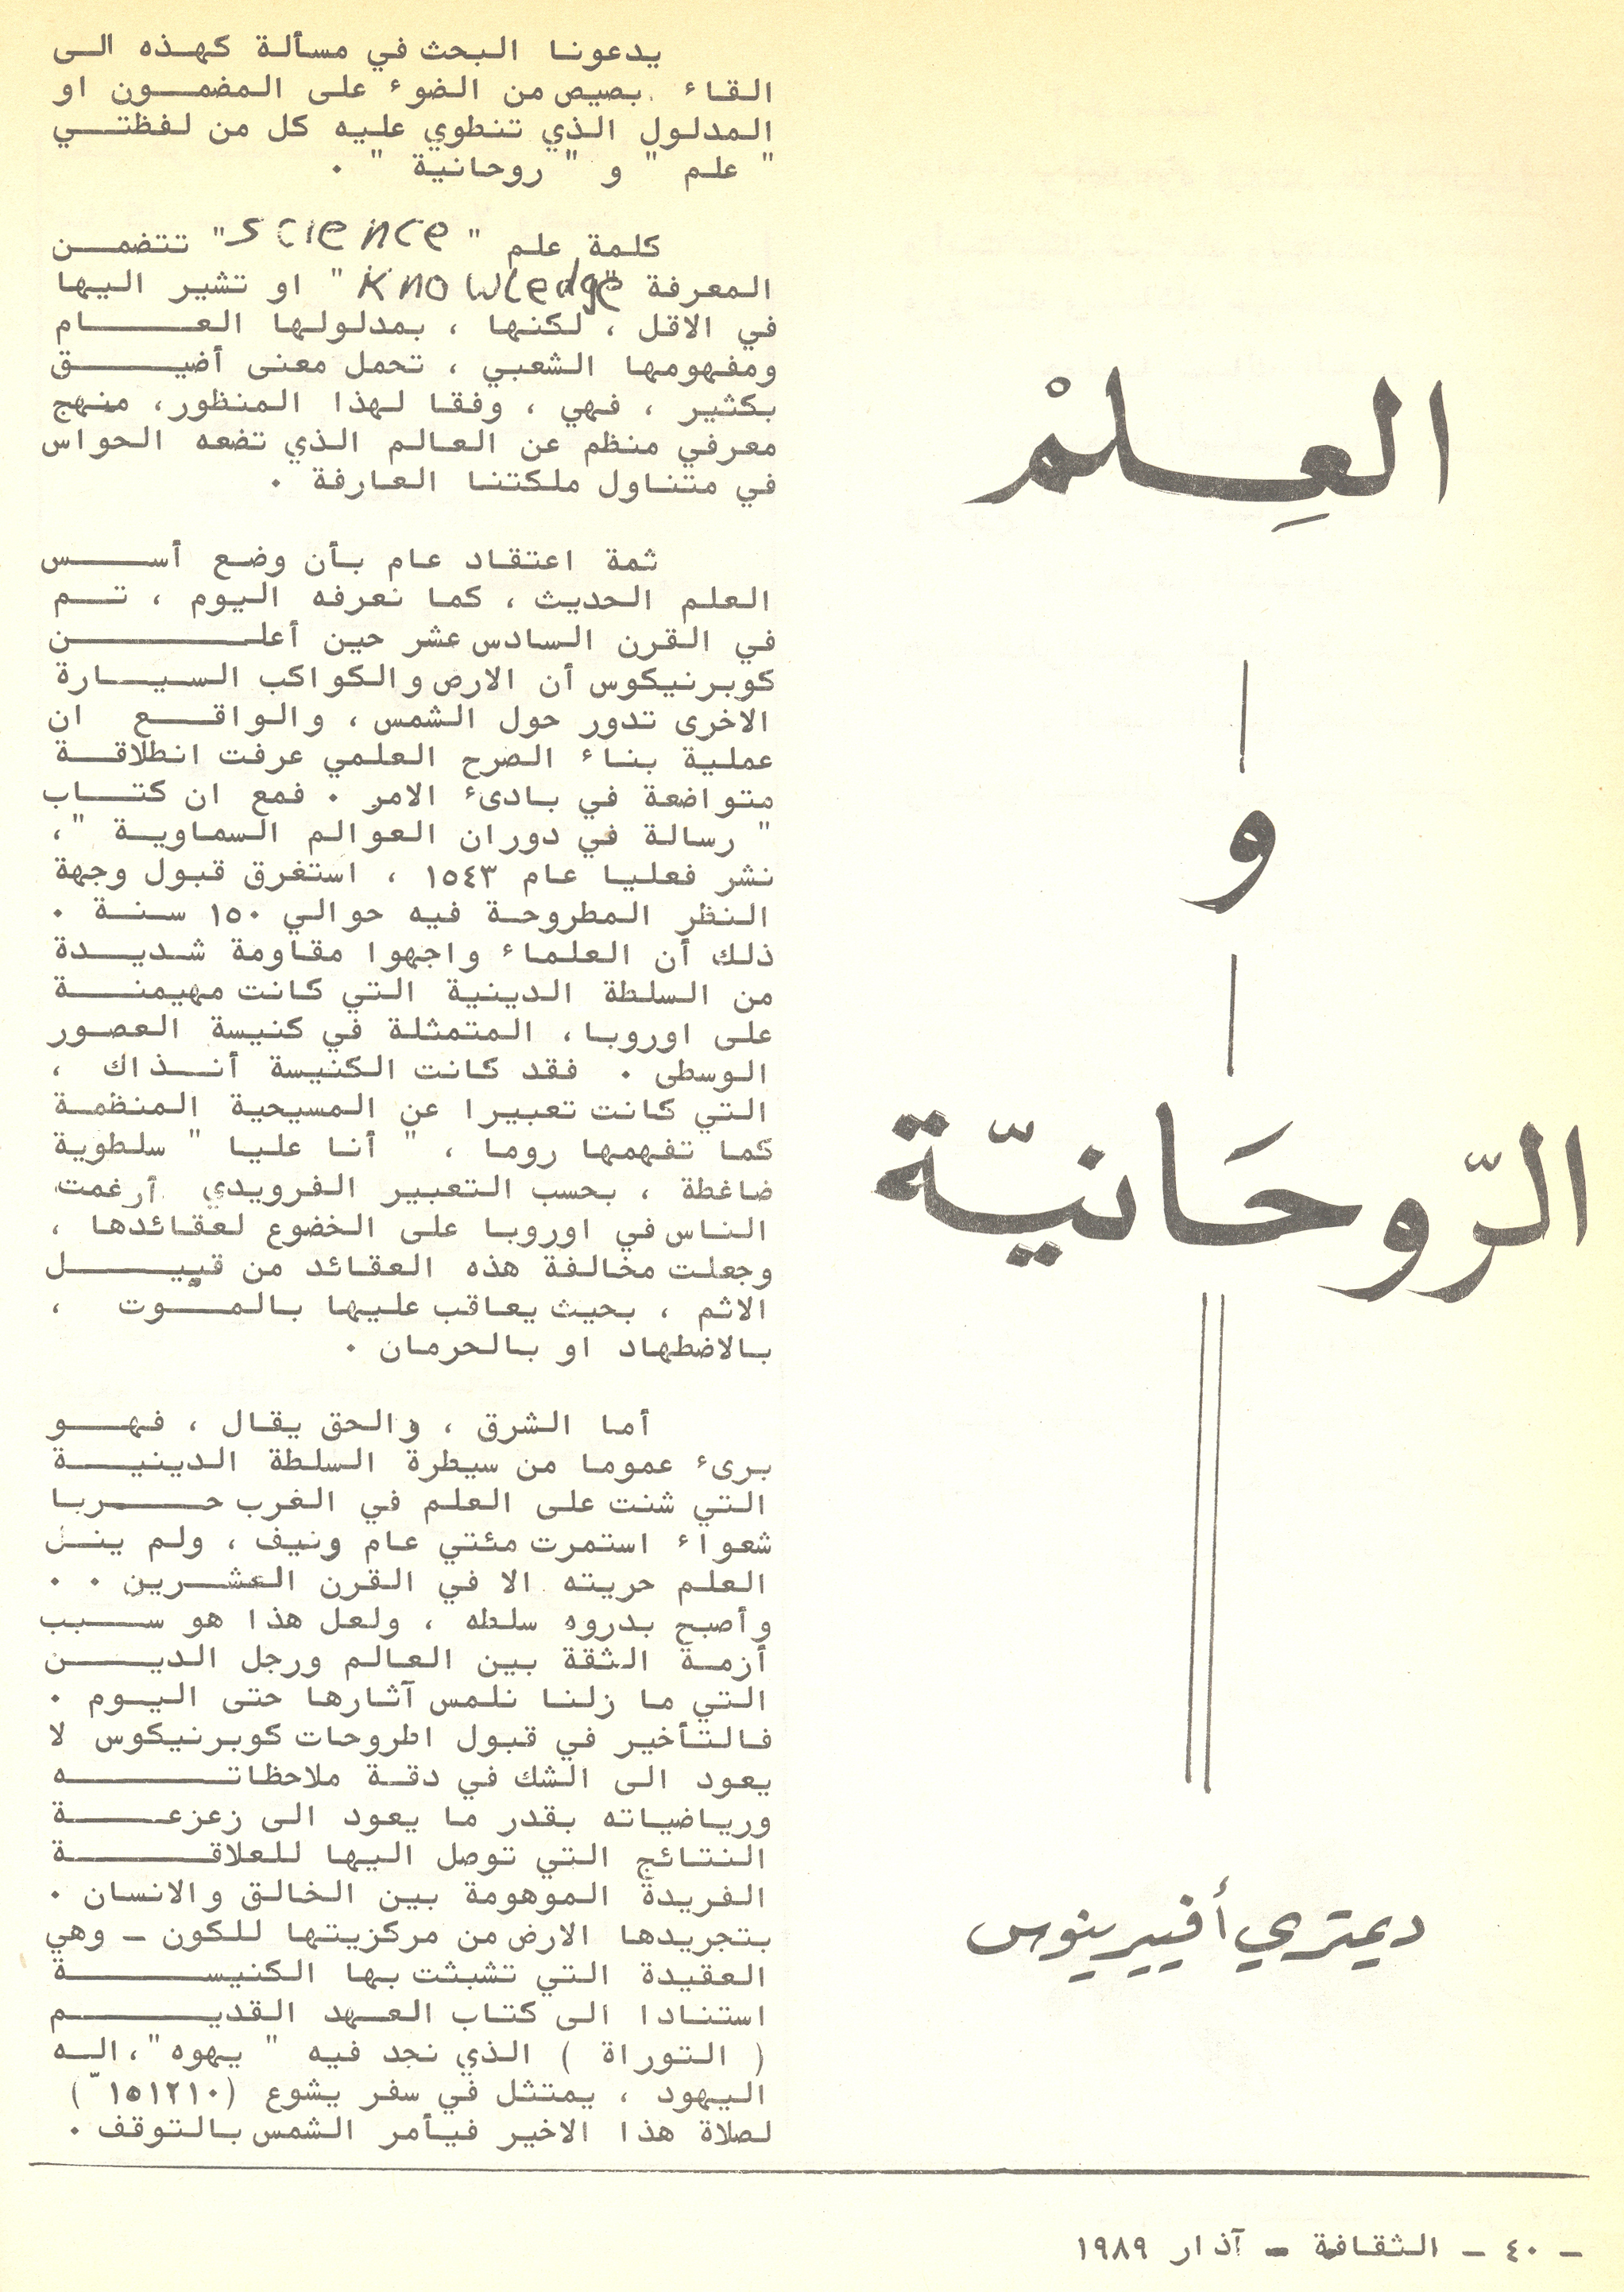 العِلمْ
و
الرّوحَانيّة
ديمتري أفييرينوس
يدعونا البحث في مسألة كهذه الى
القاء بصيص من الضوء على المضمون او
المدلول الذي تنطوي عليه كل من لفظتي
" علم " و " روحانية " .
كلمة علم " science " تتضمن
المعرفة "knowledge" او تشير اليها
في الاقل ، لكنها ، بمدلولها العام
ومفهومها الشعبي ، تحمل معنى أضيق
بكثير ، فهي ، وفقا لهذا المنظور، منهج
معرفي منظم عن العالم الذي تضعه الحواس
في متناول ملكتنا العارفة .
ثمة اعتقاد عام بأن وضع أسس
العلم الحديث ، كما نعرفه اليوم ، تم
في القرن السادس عشر حين أعلن
كوبرنيكوس أن الارض والكواكب السيارة
الاخرى تدور حول الشمس ، والواقع ان
عملية بناء الصرح العلمي عرفت انطلاقة
متواضعة في بادىء الامر . فمع ان كتاب
" رسالة في دوران العوالم السماوية "،
نشر فعليا عام ١٥٤٣ ، استغرق قبول وجهة
النظر المطروحة فيه حوالي ١٥٠ سنة .
ذلك أن العلماء واجهوا مقاومة شديدة
من السلطة الدينية التي كانت مهيمنة
على اوروبا، المتمثلة في كنيسة العصور
الوسطى . فقد كانت الكنيسة أنذاك ،
التي كانت تعبيرا عن المسيحية المنظمة
كما تفهمها روما ، " أنا عليا " سلطوية
ضاغطة ، بحسب التعبير الفرويدي أرغمت
الناس في اوروبا على الخضوع لعقائدها ،
وجعلت مخالفة هذه العقائد من قبيل
الاثم ، بحيث يعاقب عليها بالموت ،
بالاضطهاد او بالحرمان .
أما الشرق ، والحق يقال ، فهو
برىء عموما من سيطرة السلطة الدينية
التي شنت على العلم في الغرب حربا
شعواء استمرت مئتي عام ونيف ، ولم ينل
العلم حريته الا في القرن العشرين . .
وأصبح بدروه سلطه ، ولعل هذا هو سبب
أزمة الثقة بين العالم ورجل الدين
التي ما زلنا نلمس آثارها حتى اليوم .
فالتأخير في قبول اطروحات كوبرنيكوس لا
يعود الى الشك في دقة ملاحظاته
ورياضياته بقدر ما يعود الى زعزعة
النتائج التي توصل اليها للعلاقة
الفريدة الموهومة بين الخالق والانسان .
بتجريدها الارض من مركزيتها للكون - وهي
العقيدة التي تشبثت بها الكنيسة
استنادا الى كتاب العهد القديم
( التوراة ) الذي نجد فيه " يهوه "، اله
اليهود ، يمتثل في سفر يشوع
لصلاة هذا الاخير فيأمر الشمس بالتوقف .
- ٤٠ - الثقافة - آذار ١٩٨٩